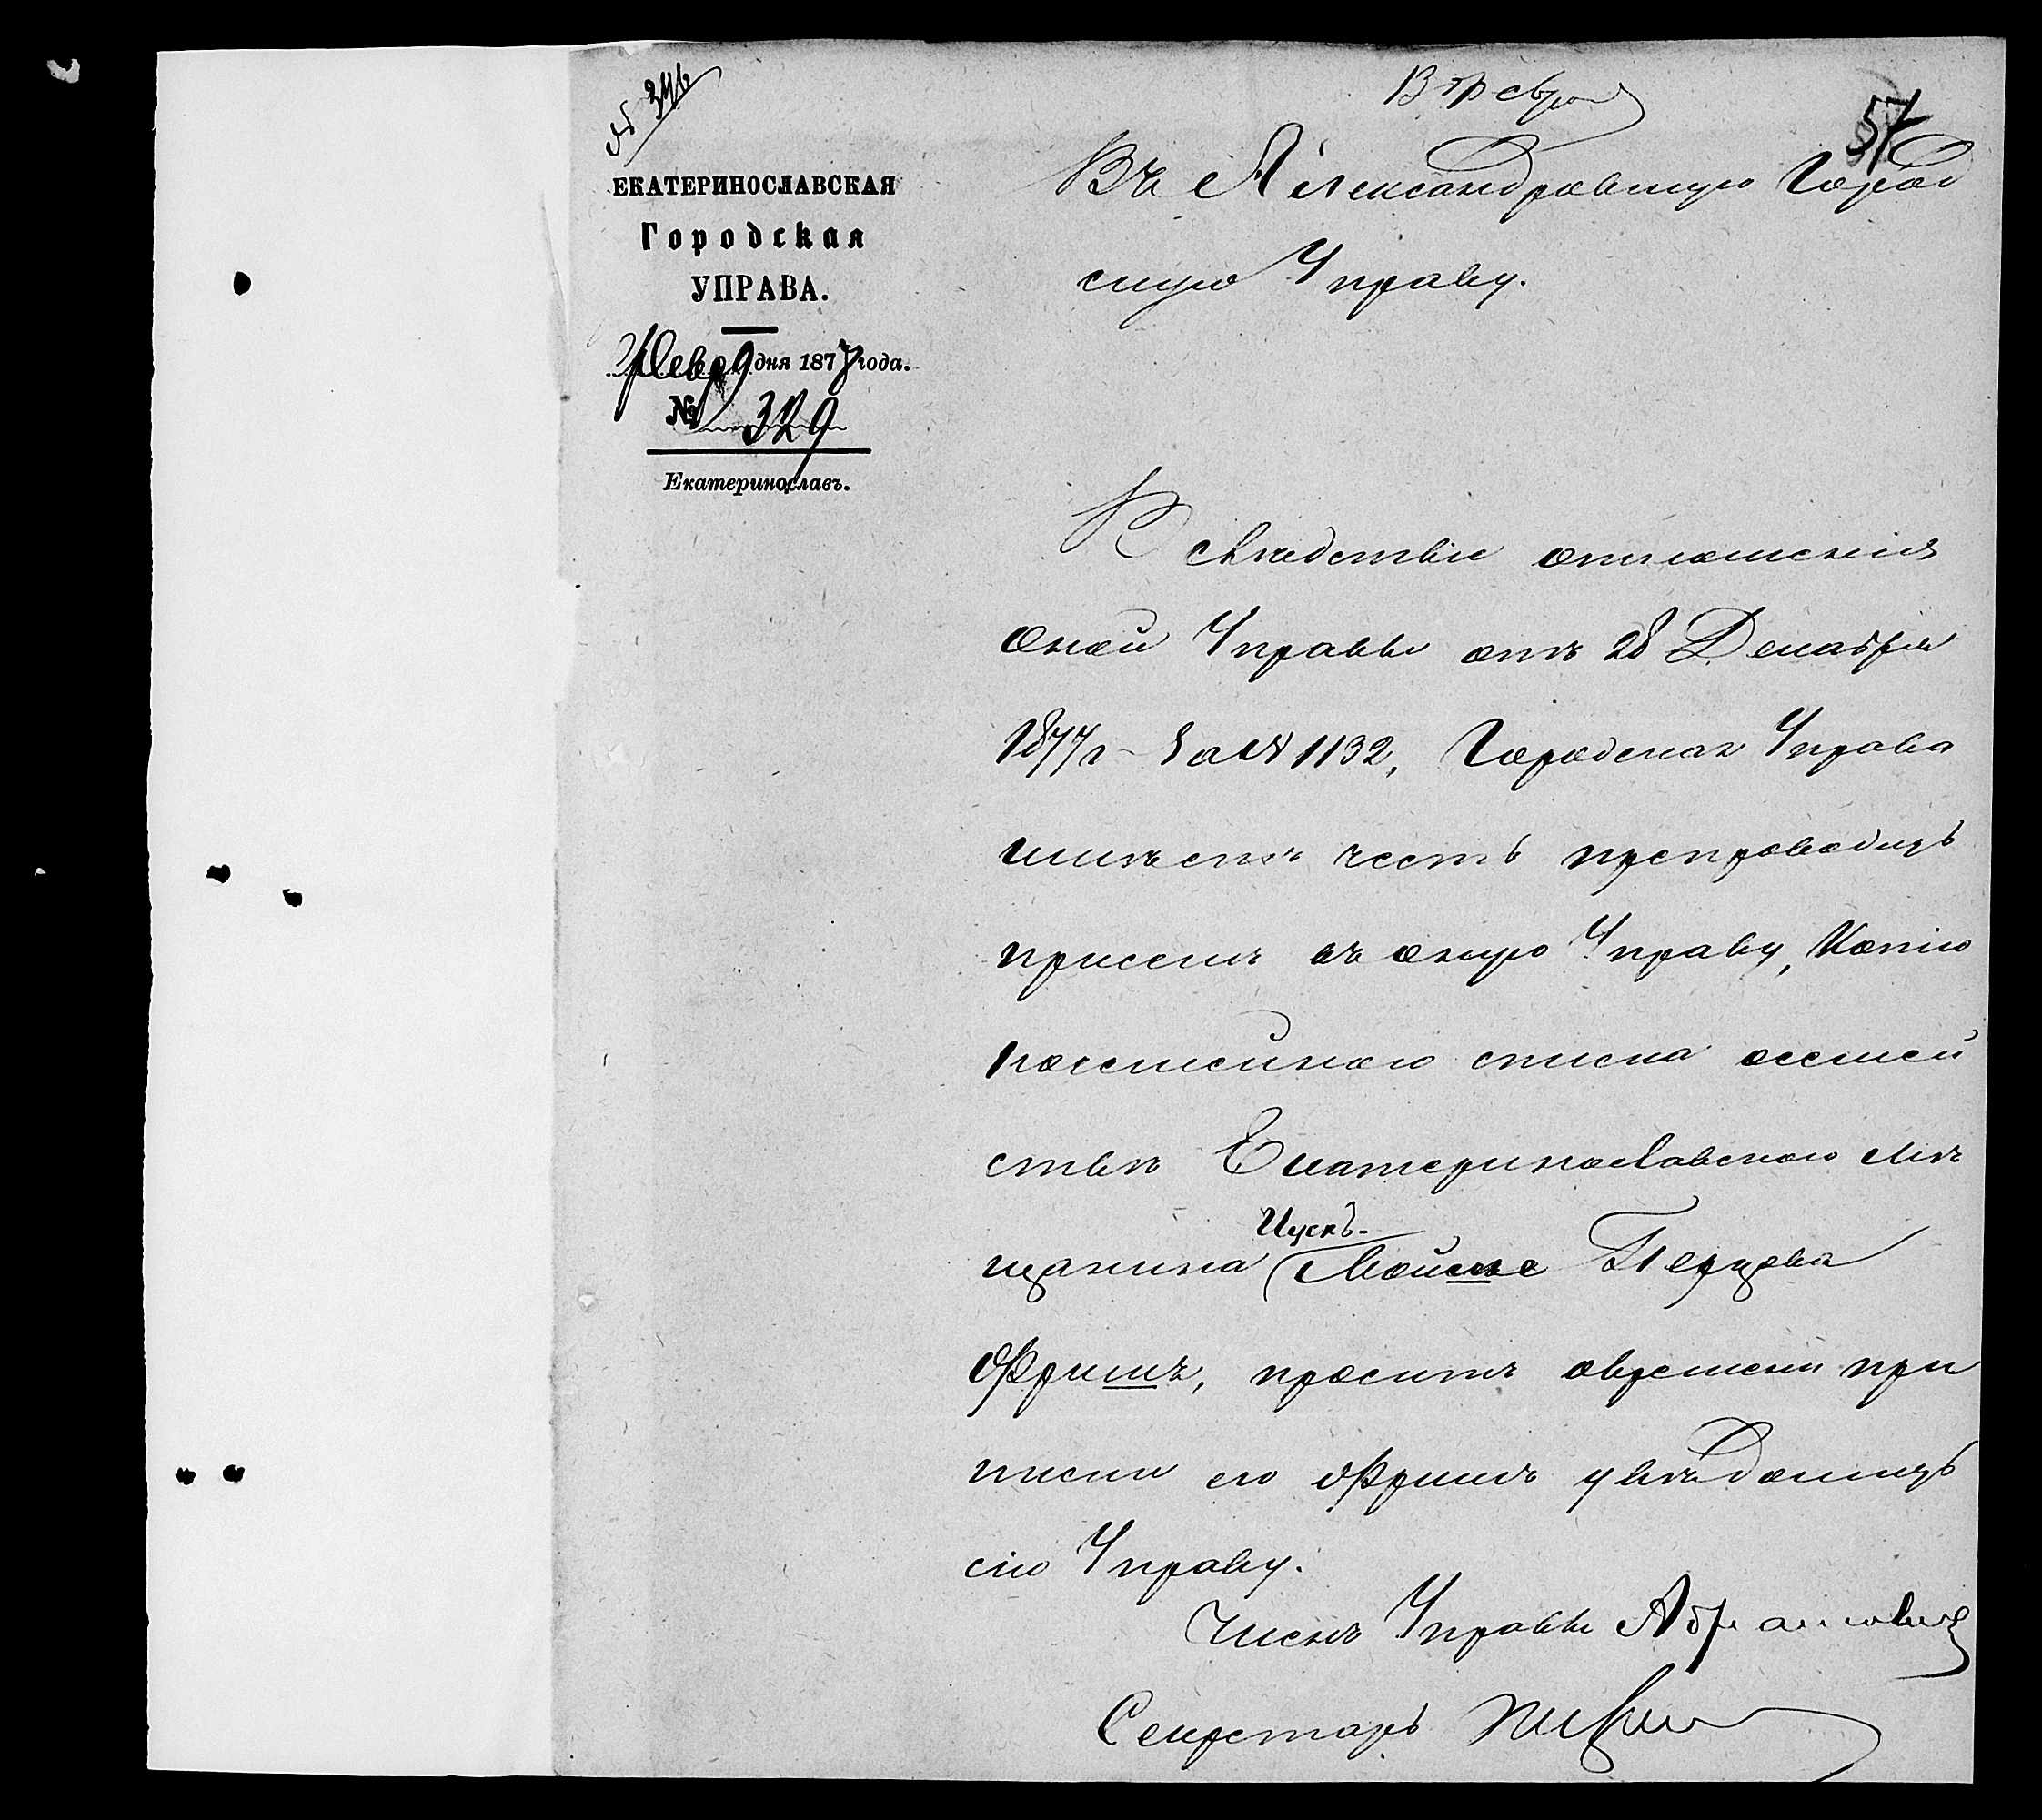 № 346
13 Февр
57
ЕКАТЕРИНОСЛАВСКАЯ
Городская
УПРАВА.
Февр 9 дня 1878 года.
№ 329
Екатеринославъ.
Въ Александровскую Город
скую Управу.
Вслѣдствіе отношенія
оной Управы отъ 28 Декабря
1877 г. за № 1132, Городская Управа
имѣетъ честь препроводить
присемъ въ оную Управу, Копію
посемейного списка осемей
ствѣ Екатеринославского мѣ
Ицекъ-
щанина Мойше Перцова
Фришъ, проситъ овремени при
писки его Фришъ увѣдомить
сію Управу.
Членъ Управы Абрамовичъ
Секретарь